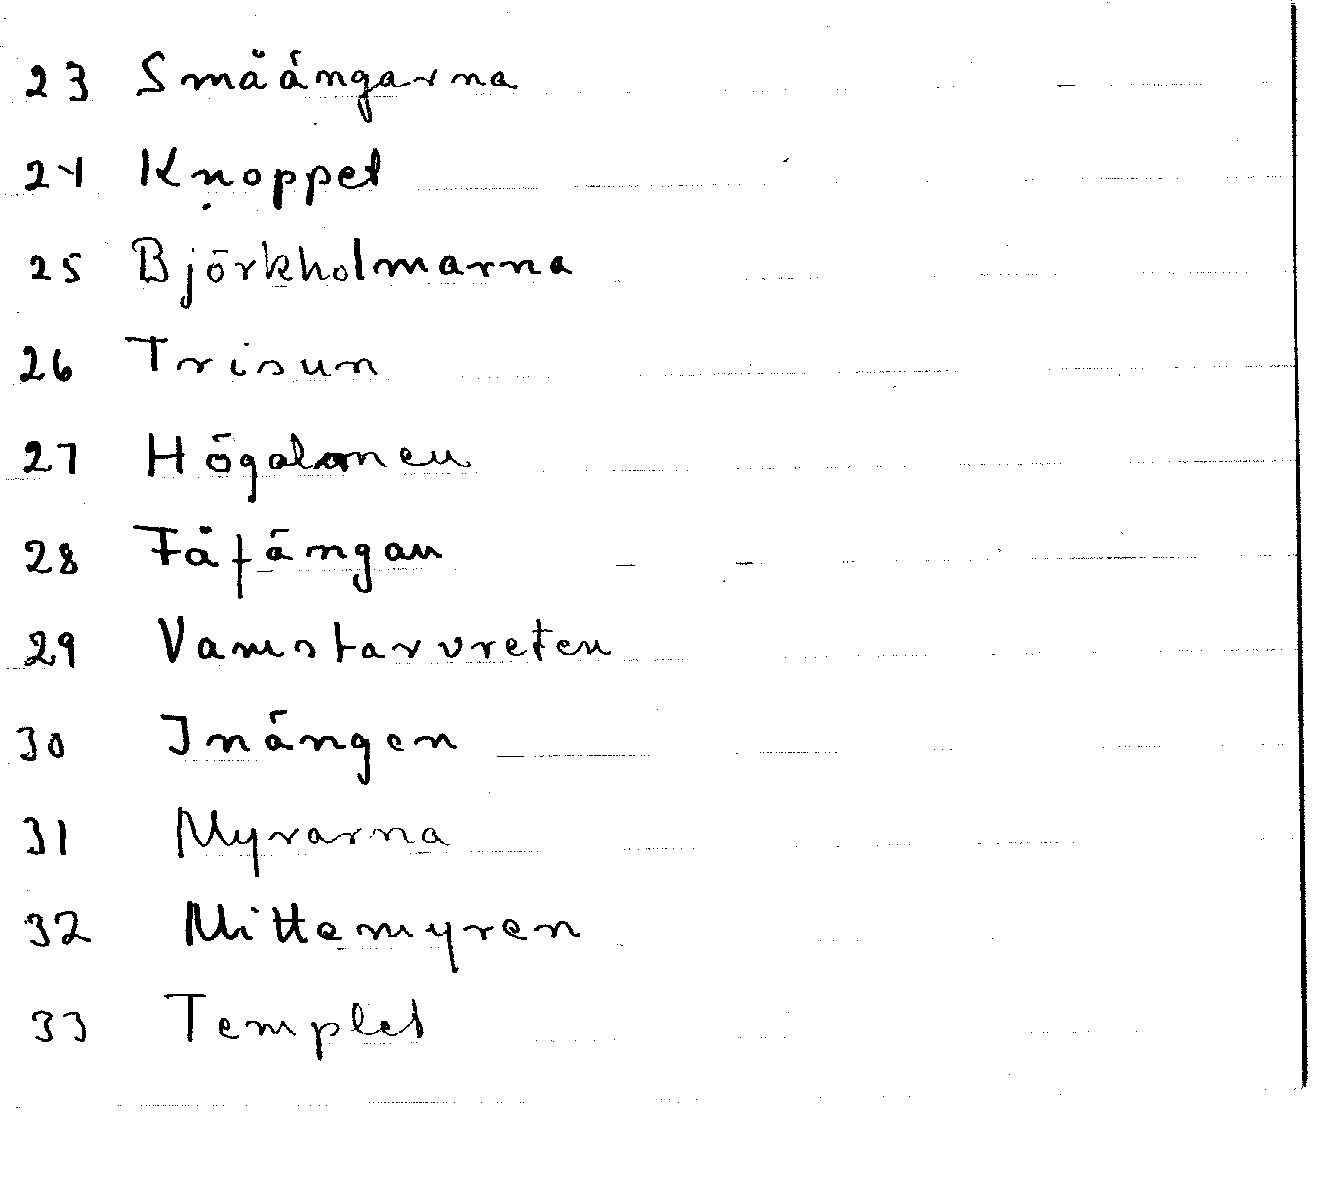 23 Småängarna
24 Knoppet
25 Björkholmarna
26 Trisun
27
28 Fåfängan
29 Vamstarvreten
30 Inängen
31 Myrarna
32 Mittemyren
33 Templet